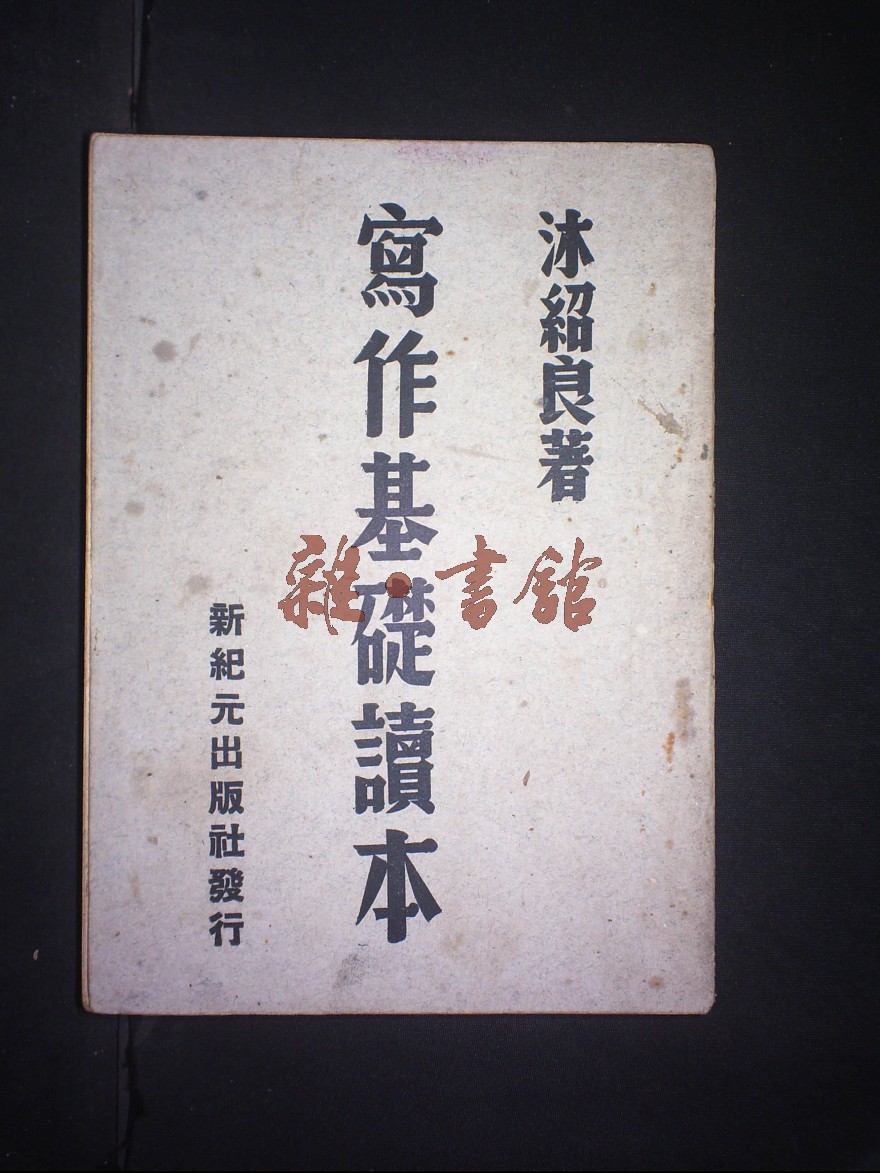 沐紹良著
寫作基礎讀本
新紀元出版社發行
雜·書館